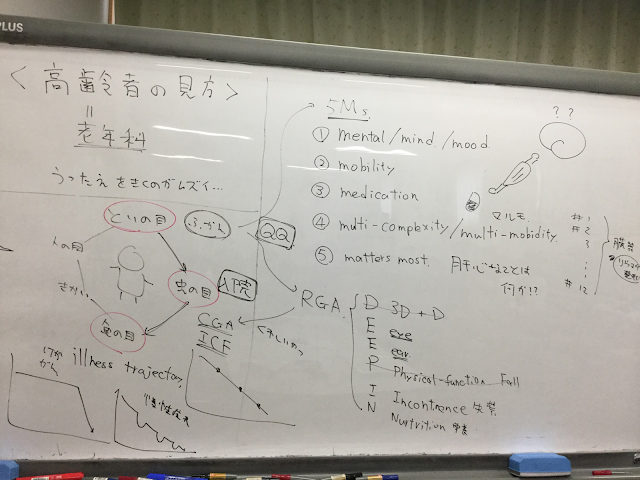 PLUS
<高齢者の見方>
=
老年科
うったえをきくのがムズイ…
とりの目
ふかん
人の目
虫の目
入院
魚の目
CGA
ICF
illness trajectory
がん
5Ms
① mental/mind/mood
② mobility
③ medication
④ multi-complexity/multi-mobidity
マルモ
⑤ matters most.
肝心なことは
何か!?
QQ
RGA
D 3D + D
E eye
E ear
P Physical-function Fall
I Incontinence 失禁
N Nurtrition 栄養
? ?
#1
#2
3
#12